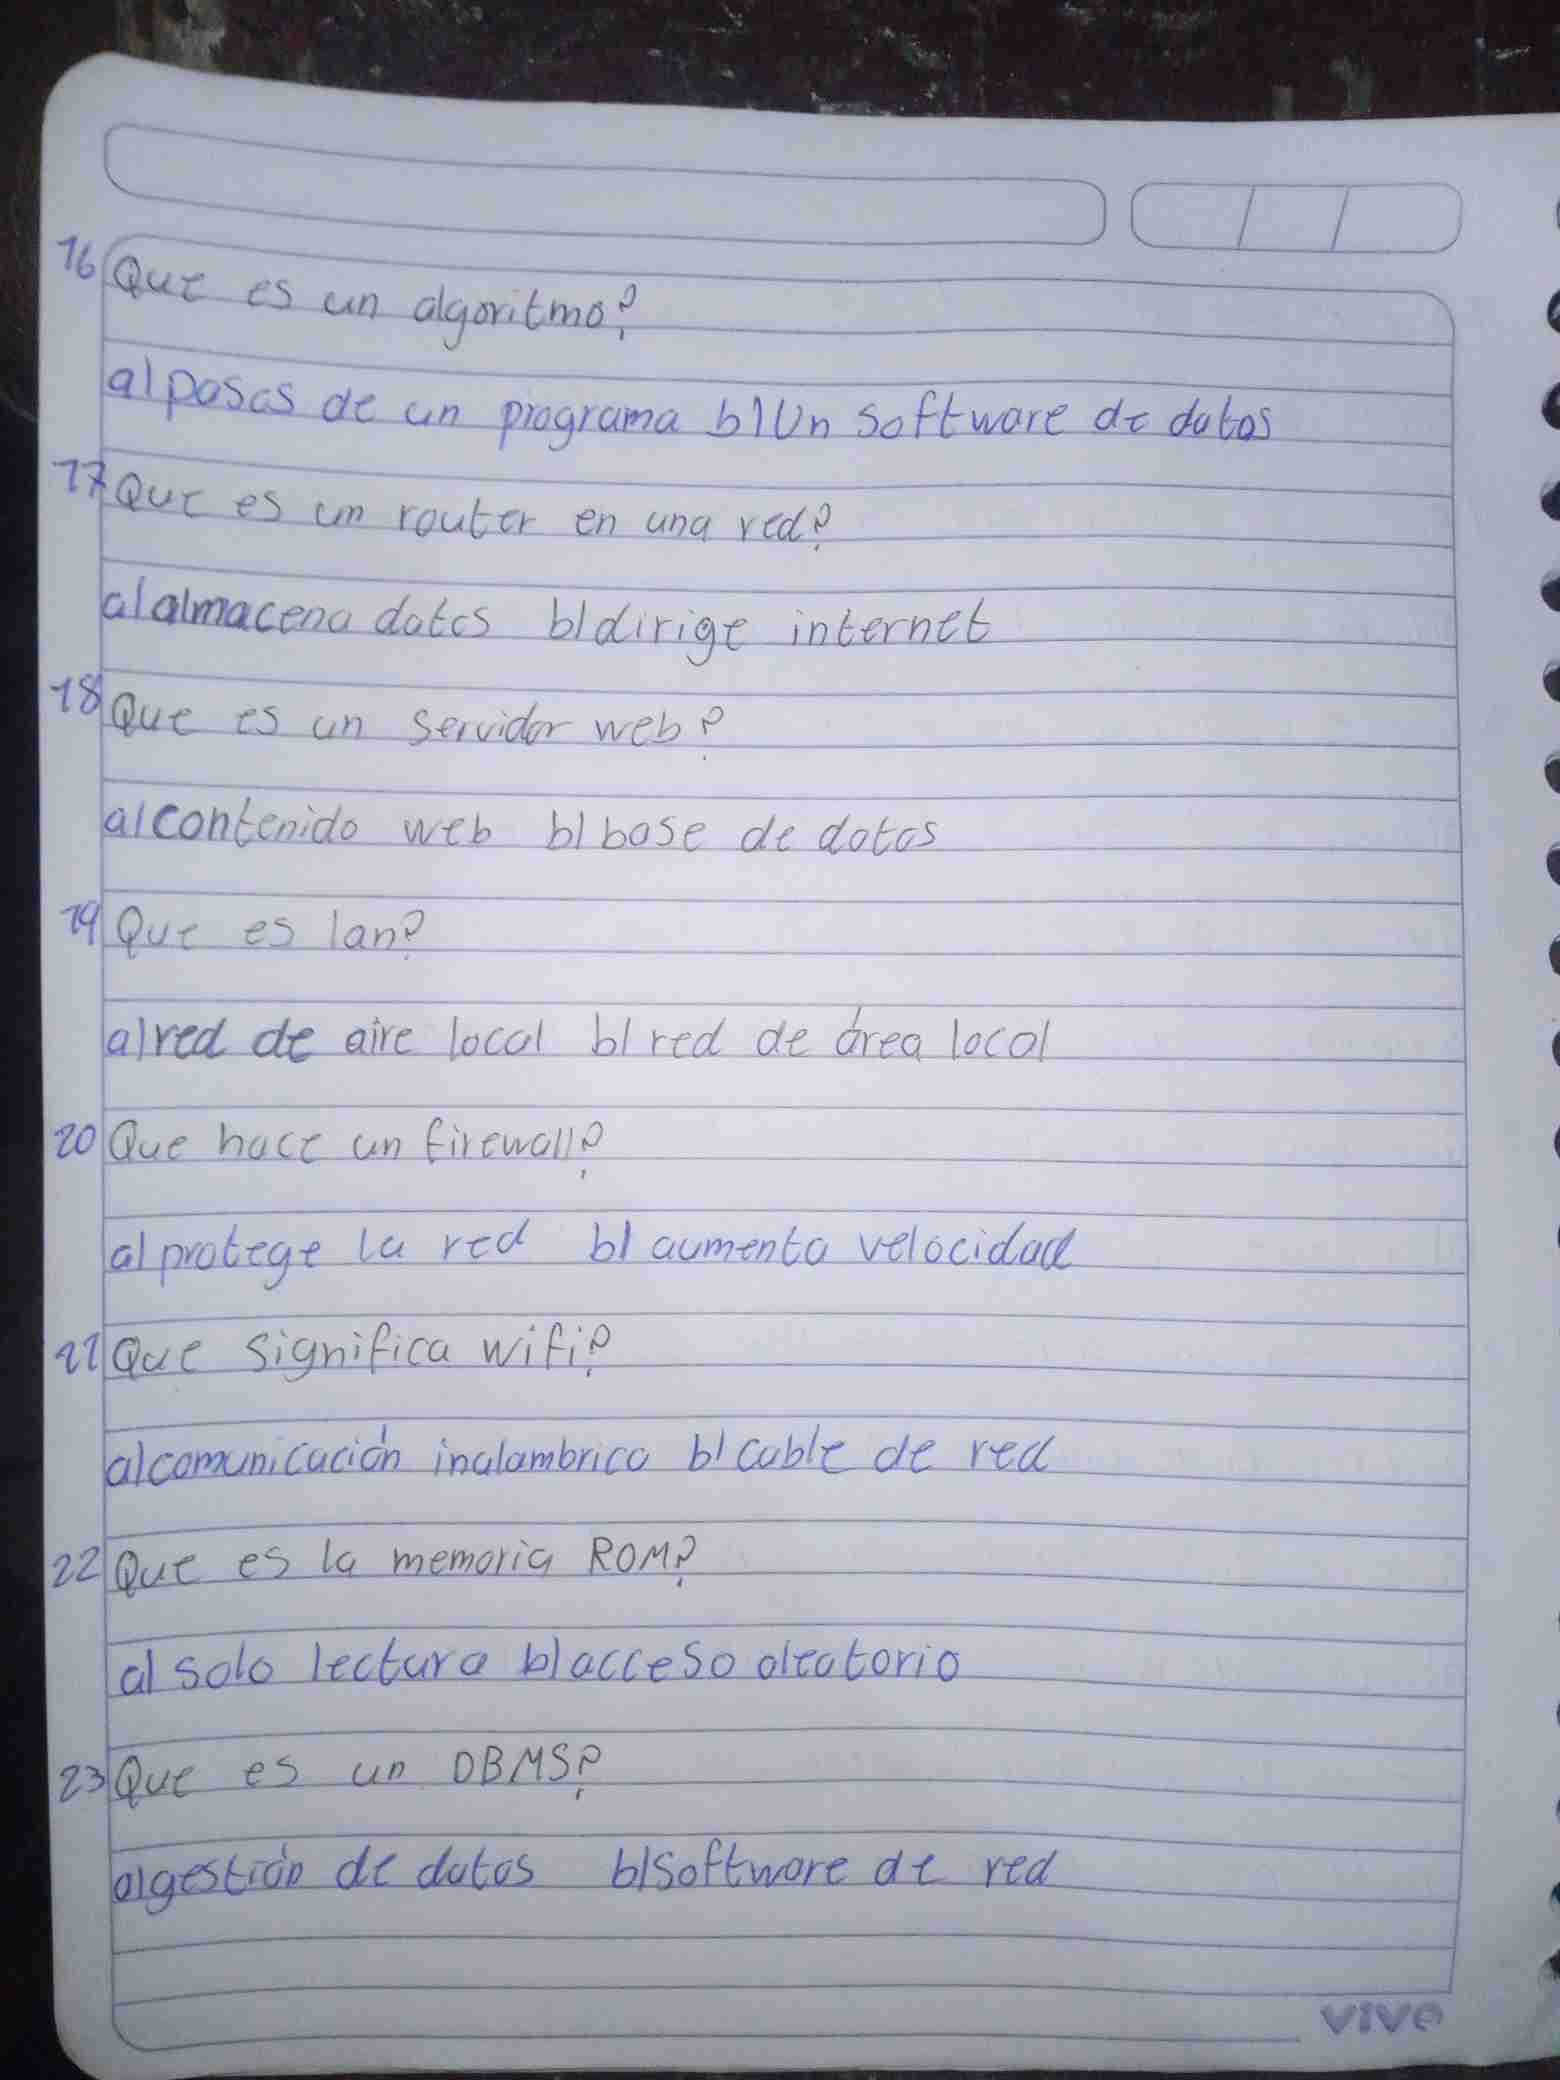 16 Que es un algoritmo?
a) pasos de un programa b) Un software de datos
17 Que es un router en una red?
a) almacena datos b) dirige internet
18 Que es un servidor web?
a) contenido web b) base de datos
19 Que es lan?
a) red de aire local b) red de área local
20 Que hace un firewall?
a) protege la red b) aumenta velocidad
21 Que significa wifi?
a) comunicación inalambrica b) cable de red
22 Que es la memoria ROM?
a) solo lectura b) acceso aleatorio
23 Que es un DBMS?
a) gestión de datos b) Software de red
vive